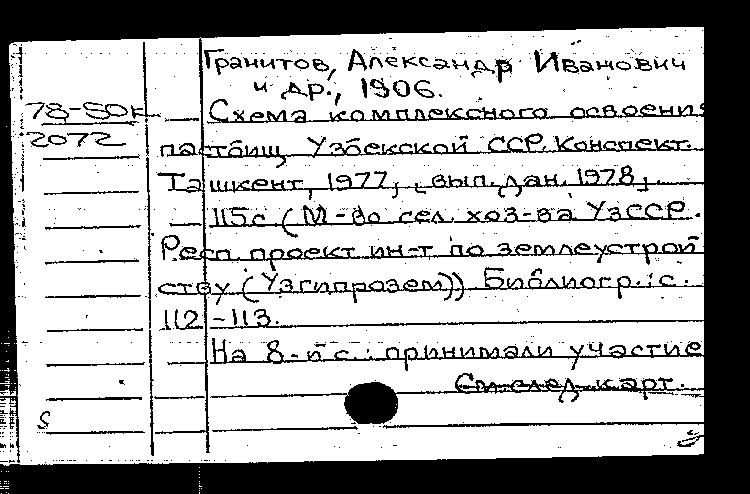 Гранитов, Александр Иванович
и др., 1906.
78-50к
Схема комплексного освоения
2072
пастбищ Узбекской ССР. Конспект.
Ташкент, 1977, [вып. дан. 1978].
115с (М-во сел. хоз-ва УзССР.
Респ проект ин-т по землеустрой
ству (Узгипрозем)) Библиогр.: с.
112-113.
На 8-й с.: принимали участие
См след. карт.
S